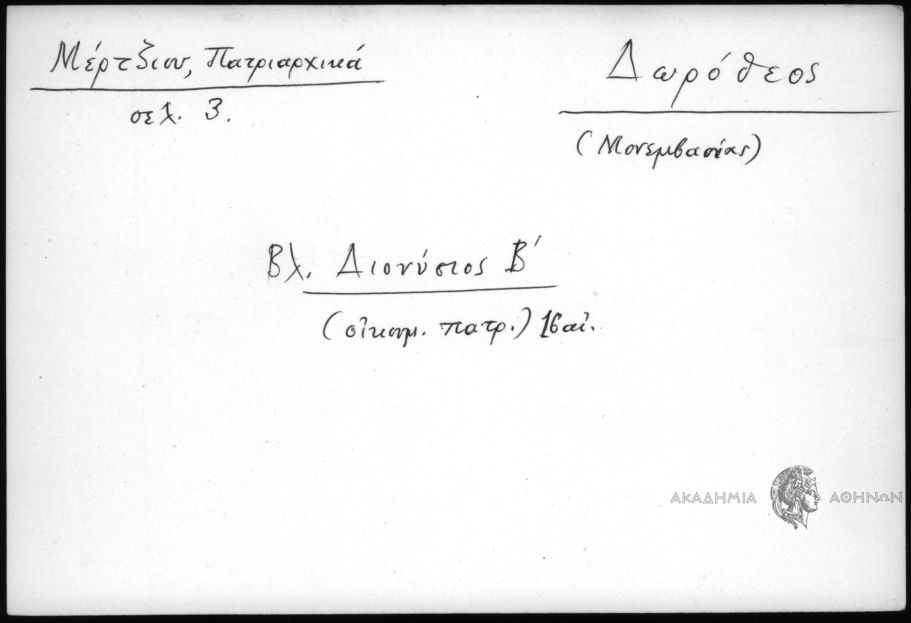 Μέρτζιου, Πατριαρχικά
σελ. 3.
Δωρόθεος
(Μονεμβασίας)
Βλ. Διονύσιος Β΄
(οἰκουμ. πατρ.) 16 αἰ.
ΑΚΑΔΗΜΙΑ ΑΘΗΝΩΝ